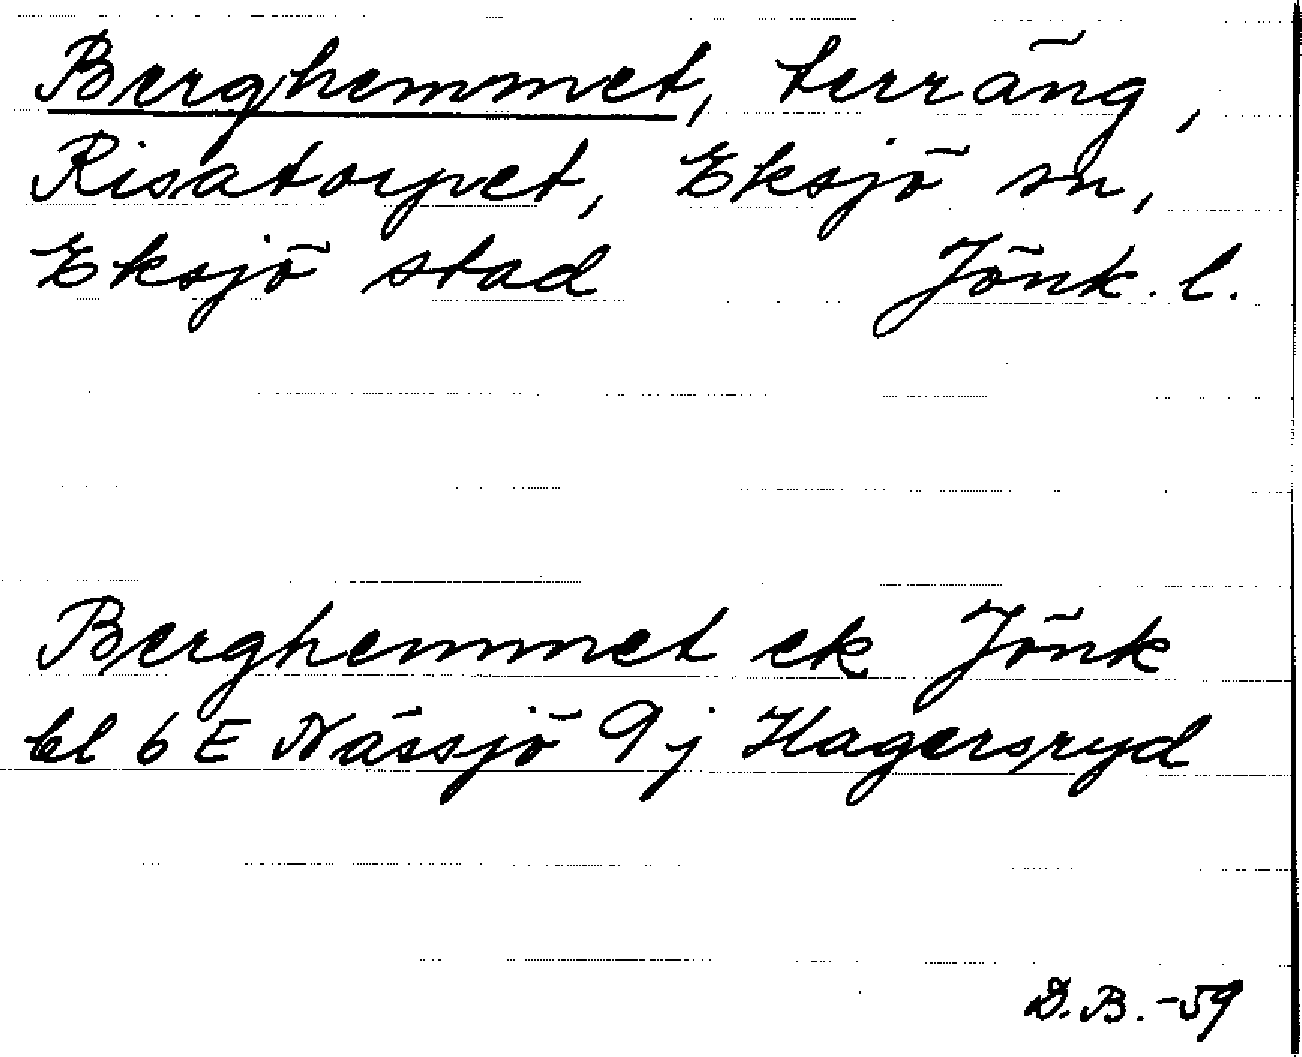 Berghemmet, terräng,
Risatorpet, Eksjö sn,
Eksjö stad Jönk. l.
Berghemmet ek Jönk
bl 6 E Nässjö 9 j Hagersryd
D.B.-59